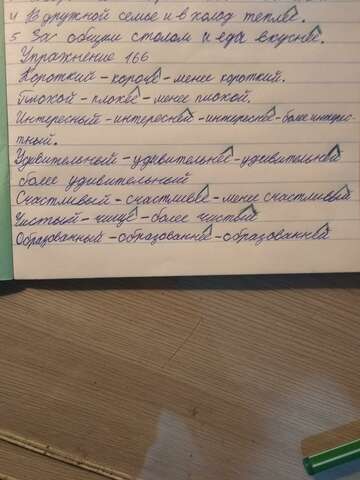 4 В дружной семье и в холод теплее.
5 За общим столом и еда вкуснее.
Упражнение 166
Короткий - короче - менее короткий.
Плохой - плохее - менее плохой.
Интересный - интересней - интереснее - более интерес-
тный.
Удивительный - удивительнее - удивительней
более удивительный
Счастливый - счастливее - менее счастливый
Чистый - чище - более чистый
Образованный - образованнее - образованней